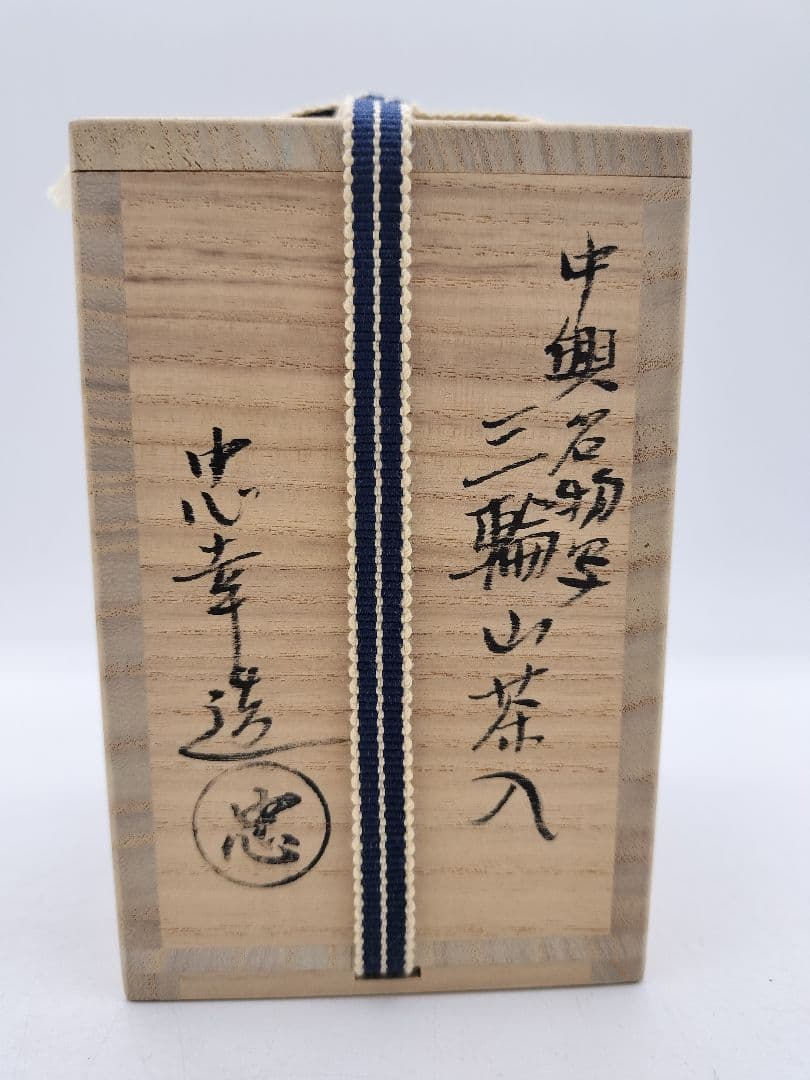 中興名物写
三輪山茶入
忠幸造
忠